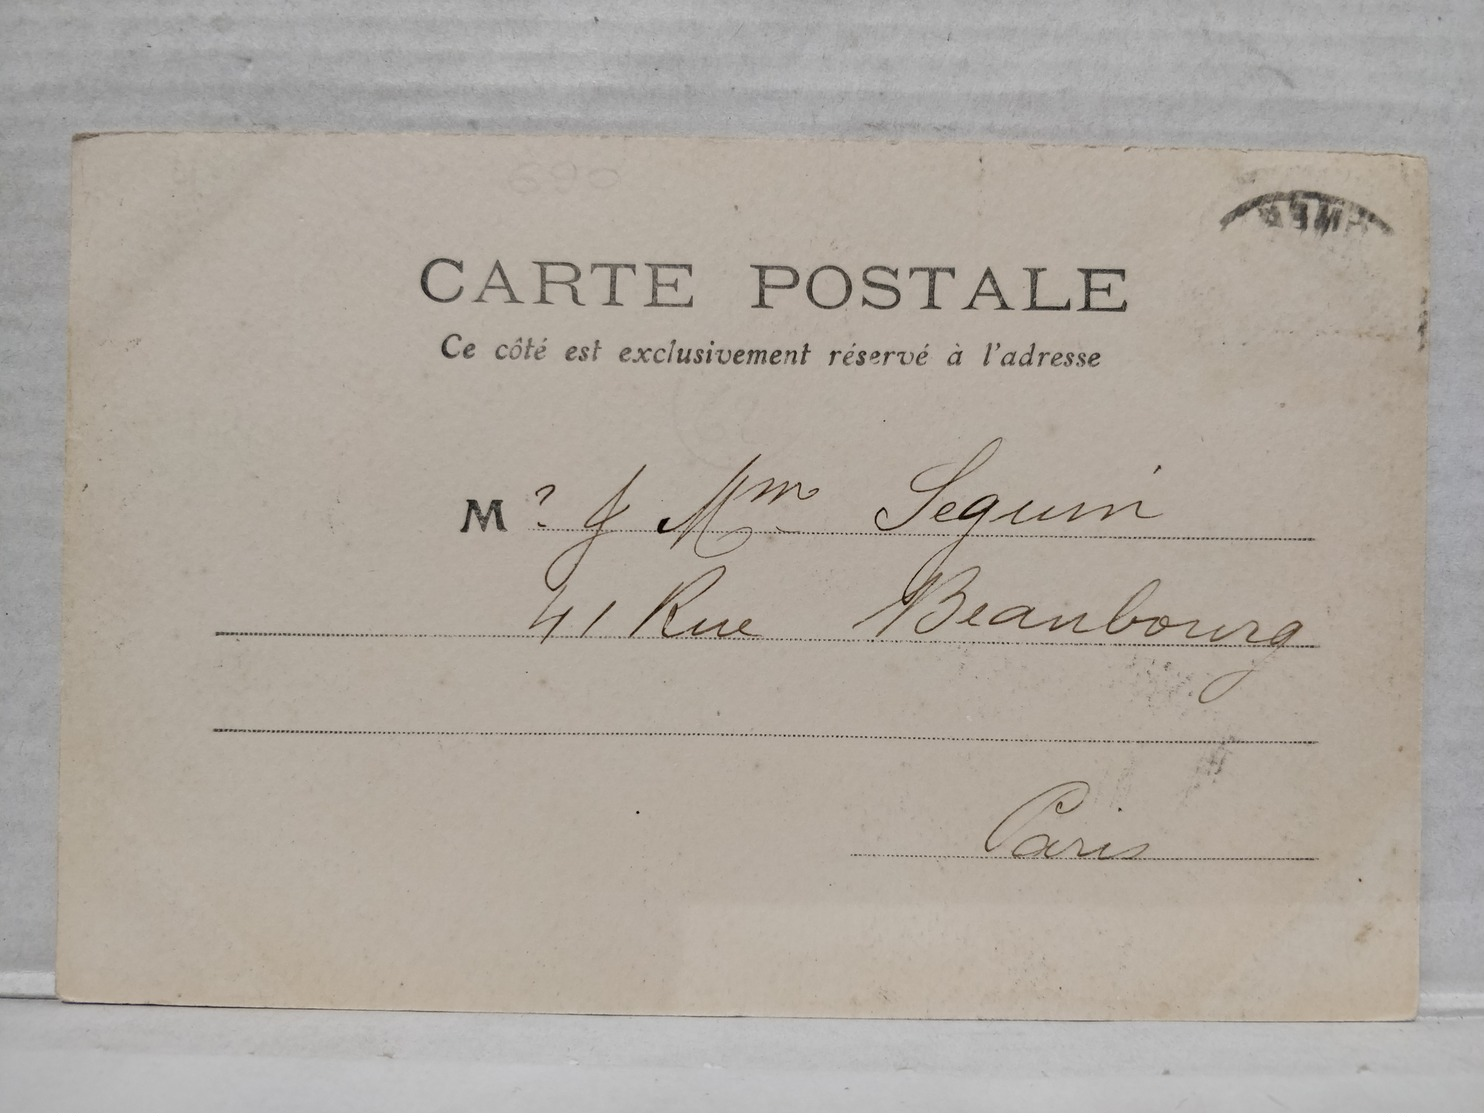 690
CARTE POSTALE
Ce côté est exclusivement réservé à l'adresse
62
Mr & Mme Seguin
41 Rue Beaubourg
Paris